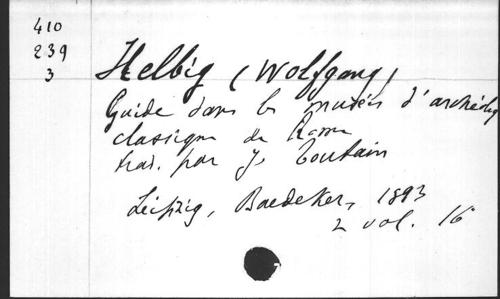 410
239
3
Helbig (Wolfgang)
Guide dans les musées d'archéolog
classique de Rome
trad. par J. Toutain
Leipzig, Baedeker, 1893
2 vol. 16°